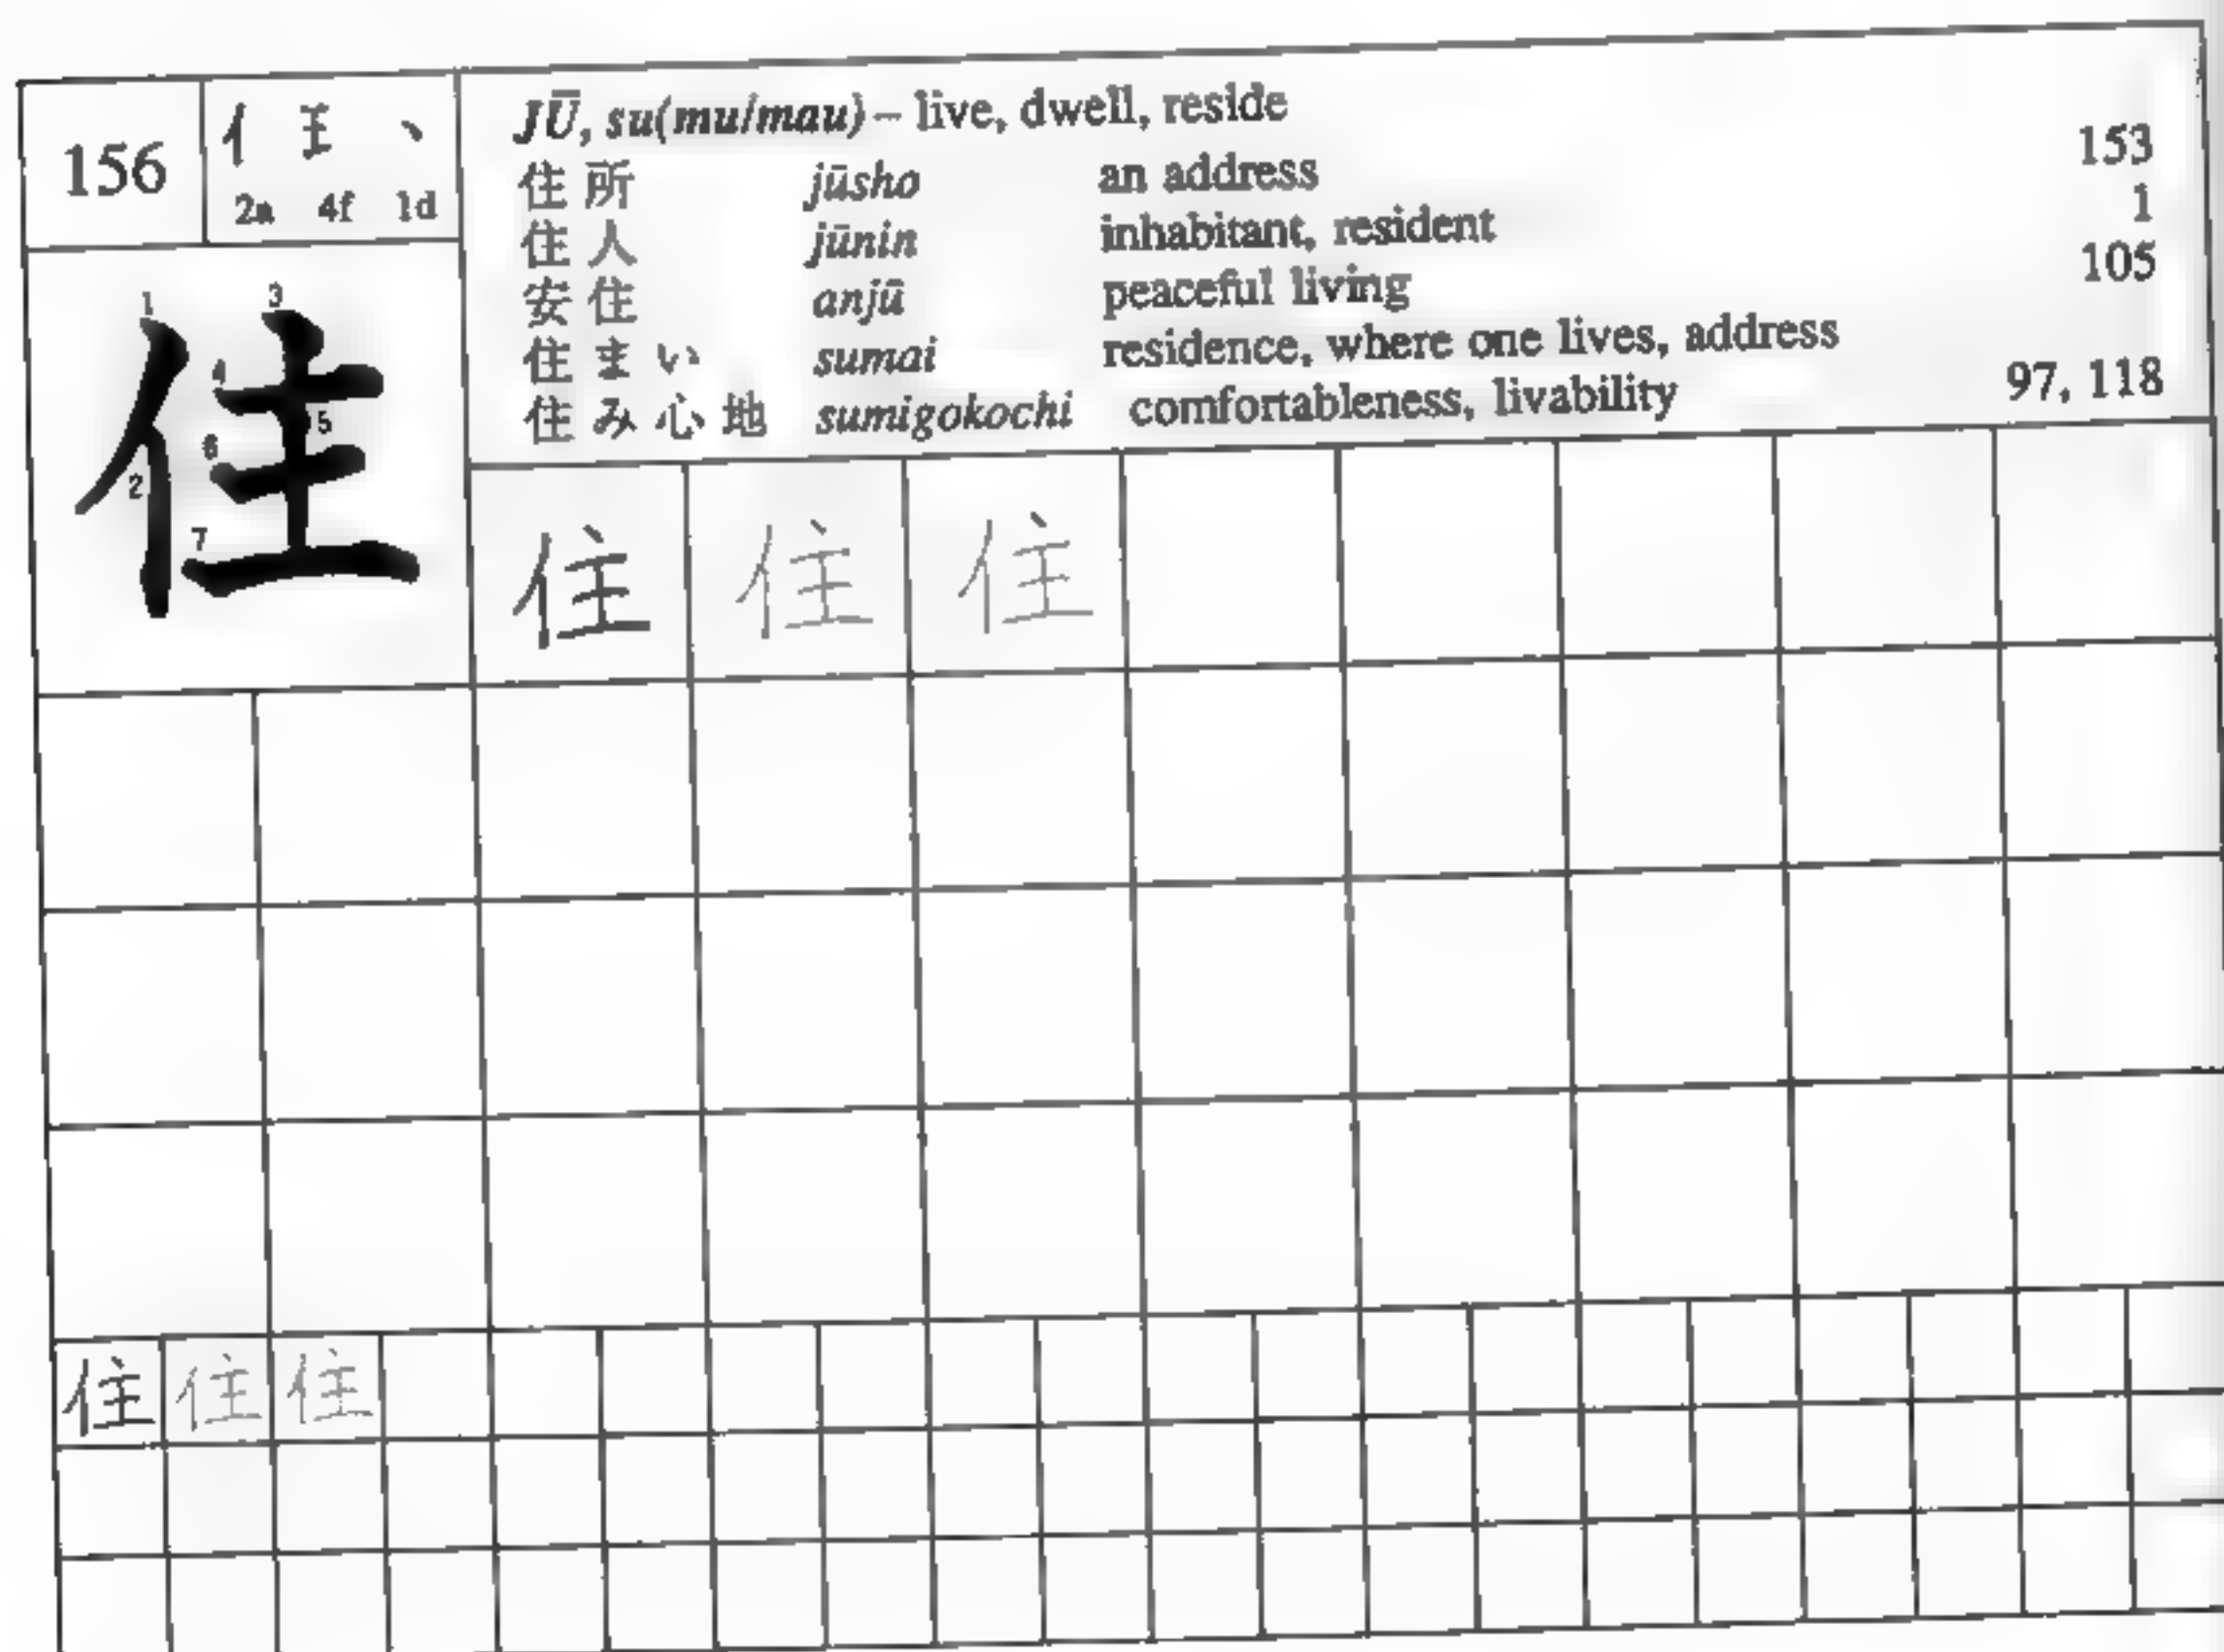 156
亻 王 丶
2a 4f 1d
JŪ, su(mu/mau) – live, dwell, reside
住所 jūsho an address 153
住人 jūnin inhabitant, resident 1
安住 anjū peaceful living 105
住まい sumai residence, where one lives, address
住み心地 sumigokochi comfortableness, livability 97, 118
住
1 2 3 4 5 6 7
住 住 住
住 住 住